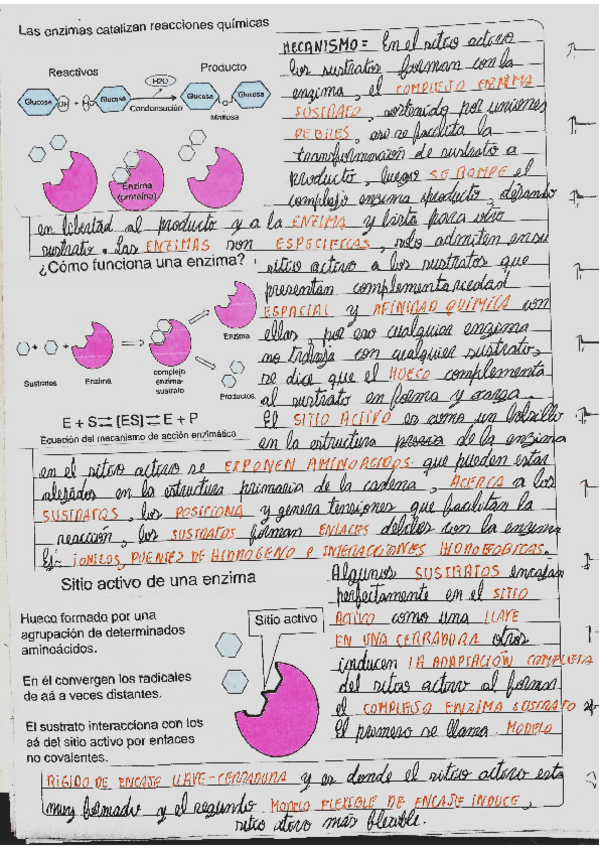 Las enzimas catalizan reacciones químicas
Reactivos
Producto
H2O
Glucosa OH + Glucosa
Condensución
Glucosa O Glucosa
Maltosa
Enzima
(proteína)
MECANISMO = En el sitio activo
los sustratos forman con la
enzima, el COMPLEJO ENZIMA
SUSTRATO, sostenido por uniones
DEBILES, asi se facilita la
transformacion de sustrato a
producto, luego SE ROMPE el
complejo enzima producto, dejando
en libertad al producto y a la ENZIMA y lista para otro
sustrato. Las ENZIMAS son ESPECIFICAS, solo admiten en su
¿Cómo funciona una enzima?
sitio activo a los sustratos que
presentan complementariedad
ESPACIAL y AFINIDAD QUÍMICA con
ellas, por eso cualquier enzima
no trabaja con cualquier sustrato,
se dice que el HUECO complementa
al sustrato en forma y carga.
El SITIO ACTIVO es como un bolsillo
en la estructura de la enzima
Sustratos
Enzima
complejo
enzima-
sustrato
Enzima
Productos
E + S ⇄ [ES] ⇄ E + P
Ecuación del mecanismo de acción enzimática
en el sitio activo se EXPONEN AMINOACIDOS que pueden estar
alejados en la estructura primaria de la cadena, ACERCA a los
SUSTRATOS, los POSICIONA y genera tensiones que facilitan la
reacción, los SUSTRATOS forman ENLACES debiles con la enzima
Ej: IONICOS, PUENTES DE HIDROGENO e INTERACCIONES HIDROFOBICAS.
Sitio activo de una enzima
Hueco formado por una
agrupación de determinados
aminoácidos.
En él convergen los radicales
de aá a veces distantes.
El sustrato interacciona con los
aá del sitio activo por enlaces
no covalentes.
Sitio activo
Algunos SUSTRATOS encajan
perfectamente en el SITIO
ACTIVO como una LLAVE
EN UNA CERRADURA otros
inducen LA ADAPTACIÓN COMPLETA
del sitio activo al formar
el COMPLEJO ENZIMA SUSTRATO
El primero se llama MODELO
RIGIDO DE ENCAJE LLAVE-CERRADURA y es donde el sitio activo esta
muy formado y el segundo MODELO FLEXIBLE DE ENCAJE INDUCE,
sitio activo más flexible.